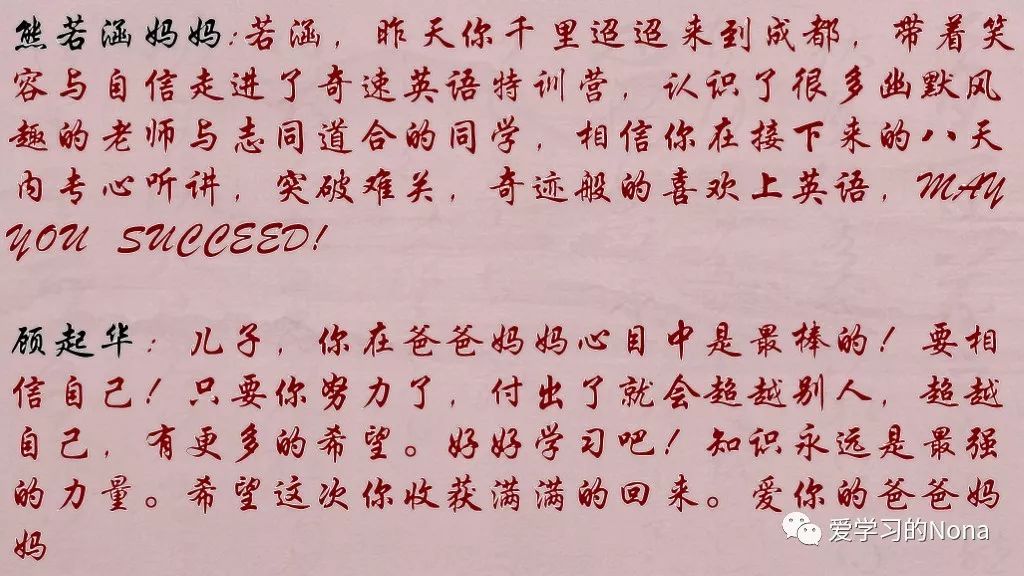 熊若涵妈妈:若涵，昨天你千里迢迢来到成都，带着笑
容与自信走进了奇速英语特训营，认识了很多幽默风
趣的老师与志同道合的同学，相信你在接下来的八天
内专心听讲，突破难关，奇迹般的喜欢上英语，MAY
YOU SUCCEED!
顾起华：儿子，你在爸爸妈妈心目中是最棒的！要相
信自己！只要你努力了，付出了就会超越别人，超越
自己，有更多的希望。好好学习吧！知识永远是最强
的力量。希望这次你收获满满的回来。爱你的爸爸妈
妈
爱学习的Nona